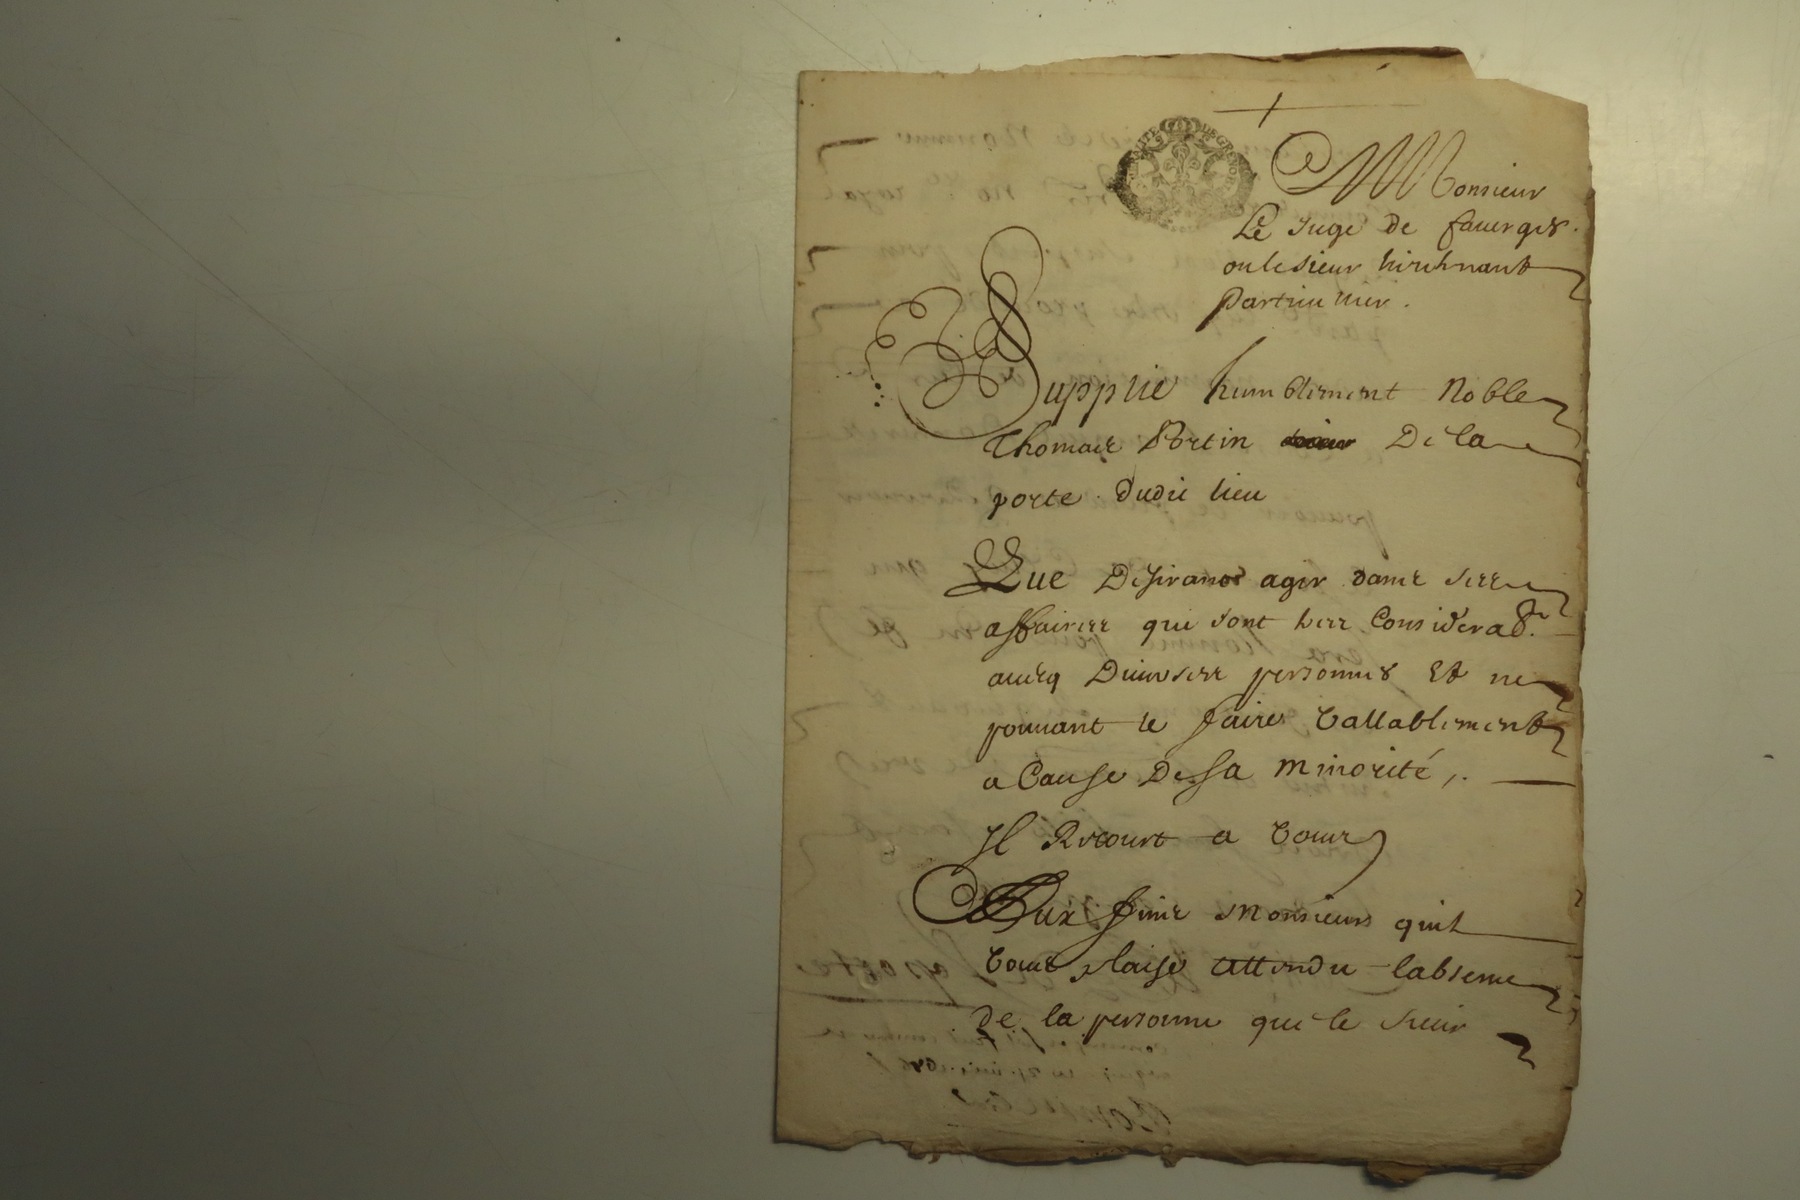 Monsieur
Le Juge de faverges
ou le sieur lieutenant
particulier.
Supplie humblement Noble
Thomas Portin De la
porte dudit lieu
Que Desirant agir dans ses
affaires qui sont tres Considerab.les
avecq Diverses personnes Et ne
pouvant le faire Vallablement
a Cause De sa Minorité,.
Il Recourt a Vous
Aux fins Monsieur quil
Vous plaise attendu labsence
de la personne que le sieur